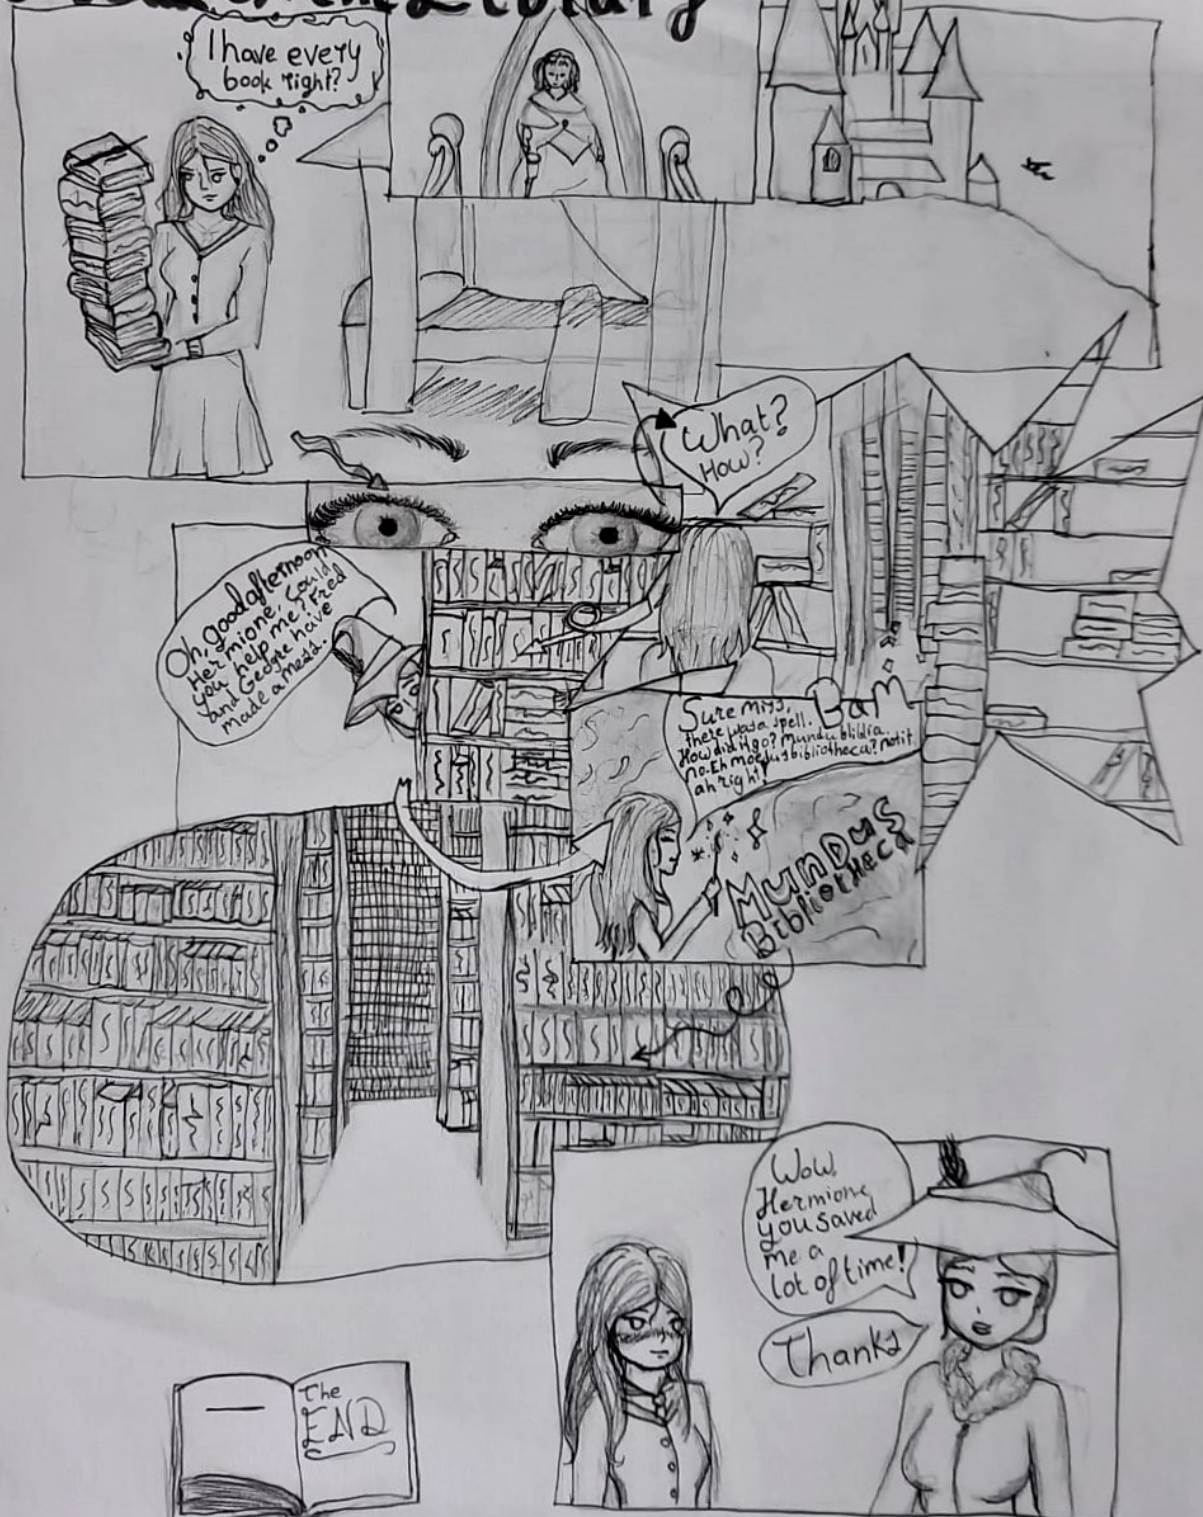 Library
I have every
book right?
What?
How?
Oh, good afternoon
Hermione, Could
you help me? Fred
and George have
made a mess.
Bam
Sure miss,
there was a spell.
How did it go? Mundu bliblia.
no. Eh moedus bibliotheca? not it
ah right!
Mundus
Bibliotheca
Wow,
Hermione
you saved
me a
lot of time!
Thanks
The
END